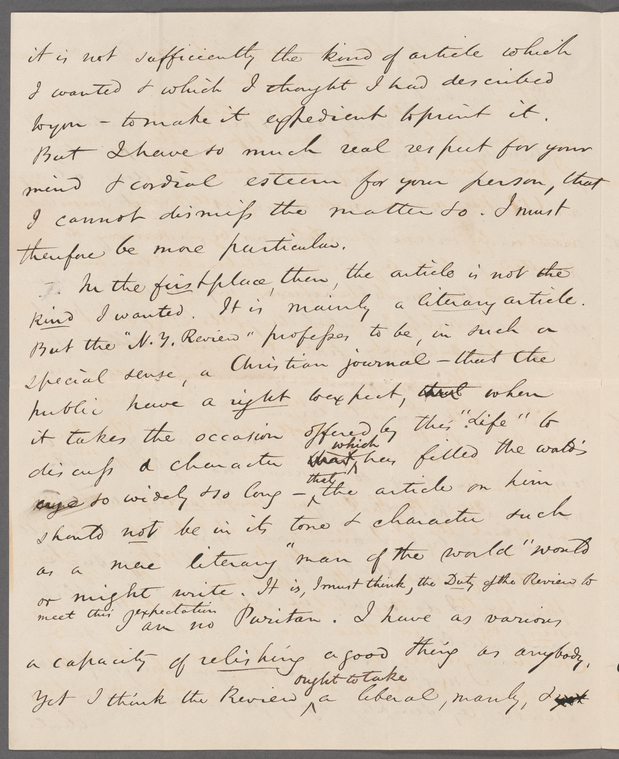 it is not sufficiently the kind of article which
I wanted & which I thought I had described
to you – to make it expedient to print it.
But I have so much real respect for your
mind & cordial esteem for your person, that
I cannot dismiss the matter so. I must
therefore be more particular.
In the first place, then, the article is not the
kind I wanted. It is mainly a literary article.
But the "N.Y. Review" professes to be, in such a
special sense, a Christian journal – that the
public have a right to expect, that when
it takes the occasion offered by this "Life" to
discuss a character which has filled the world's
eye so widely & so long – that the article on him
should not be in its tone & character such
as a mere literary "man of the world" would
or might write. It is, I must think, the Duty of the Review to
meet this expectation
I am no Puritan. I have as various
a capacity of relishing a good thing as anybody,
Yet I think the Review ought to take a liberal, manly, &